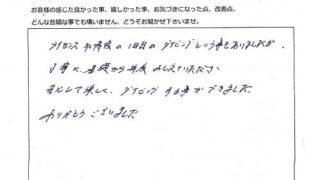 お客様の感じた良かった事、嬉しかった事、お気づきになった点、改善点、
どんな些細な事でも構いません、どうぞお聞かせ下さいませ。
ライセンス取得後の1日目のダイビングという事もありましたが、
丁寧に、基礎から再度教えていただき、
安心して楽しく、ダイビングする事ができました。
ありがとうございました